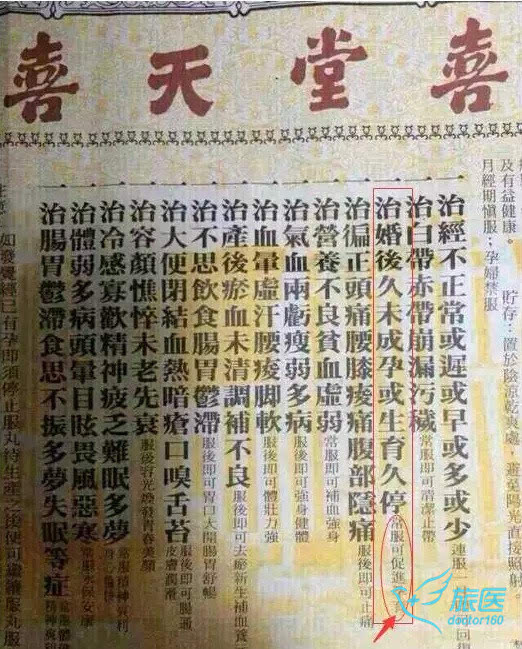 喜堂天喜
及有益健康。
貯存：置於陰涼乾爽處，避免陽光直接照射。
月經期慎服；孕婦禁服
一治經不正常或遲或早或多或少 連服一
一治白帶赤帶崩漏污穢 常服即可清潔止帶
一治婚後久未成孕或生育久停 常服可促進
一治偏正頭痛腰膝痠痛腹部隱痛 服後即可止痛
一治營養不良貧血虛弱 常服即可補血強身
一治氣血兩虧瘦弱多病 服後即可強身健體
一治血暈虛汗腰痠脚軟 服後即可體壯力強
一治產後瘀血未清調補不良 服後即可去瘀新生補血養
一治不思飲食腸胃鬱滯 服後即可胃口大開腸胃舒暢
一治大便閉結血熱暗瘡口嗅舌苔 服後即可腸通皮膚潤滑
一治容顏憔悴未老先衰 服後容光煥發青春美顏
一治冷感寡歡精神疲乏難眠多夢 常服精神爽利
一治體弱多病頭暈目眩畏風惡寒 常服永保安康
一治腸胃鬱滯食思不振多夢失眠等症
如發覺經已有孕即須停止服丸待生產之後便可繼續服丸
旅医
doctor160